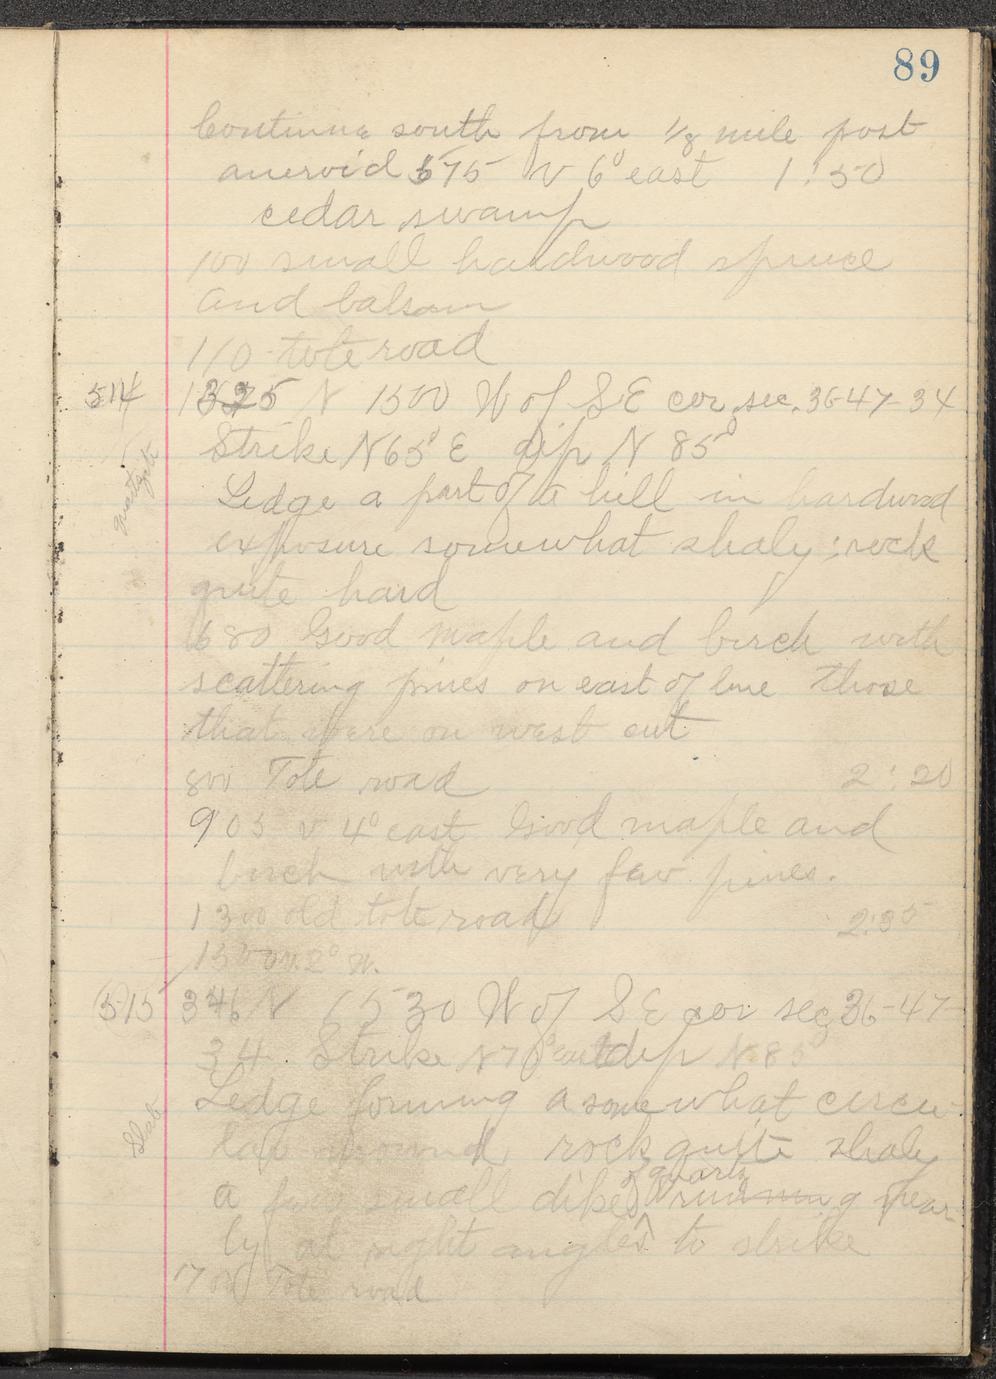 89
Continue south from 1/8 mile post
aneroid 575 v 6° east 1:50
cedar swamp
100 small hardwood spruce
and balsam
110 tote road
514 1325 N 1500 W of SE cor. sec. 36-47-34
Strike N65° E dip N 85°
quartzite
Ledge a part of a hill in hardwood
exposure somewhat shaly; rock
quite hard
680 Good maple and birch with
scattering pines on east of line those
that were on west cut
800 Tote road 2:20
905 v 4° east Good maple and
birch with very few pines.
1300 old tote road 2:35
1500 v. 2° W.
515 346 N 1530 W of SE cor sec 36-47-
34. Strike N70° east dip N 85°
Ledge forming a somewhat circu-
Slab
lar mound, rock quite shaly
a few small dikes of quartz running near-
ly at right angles to strike
1700 Tote road